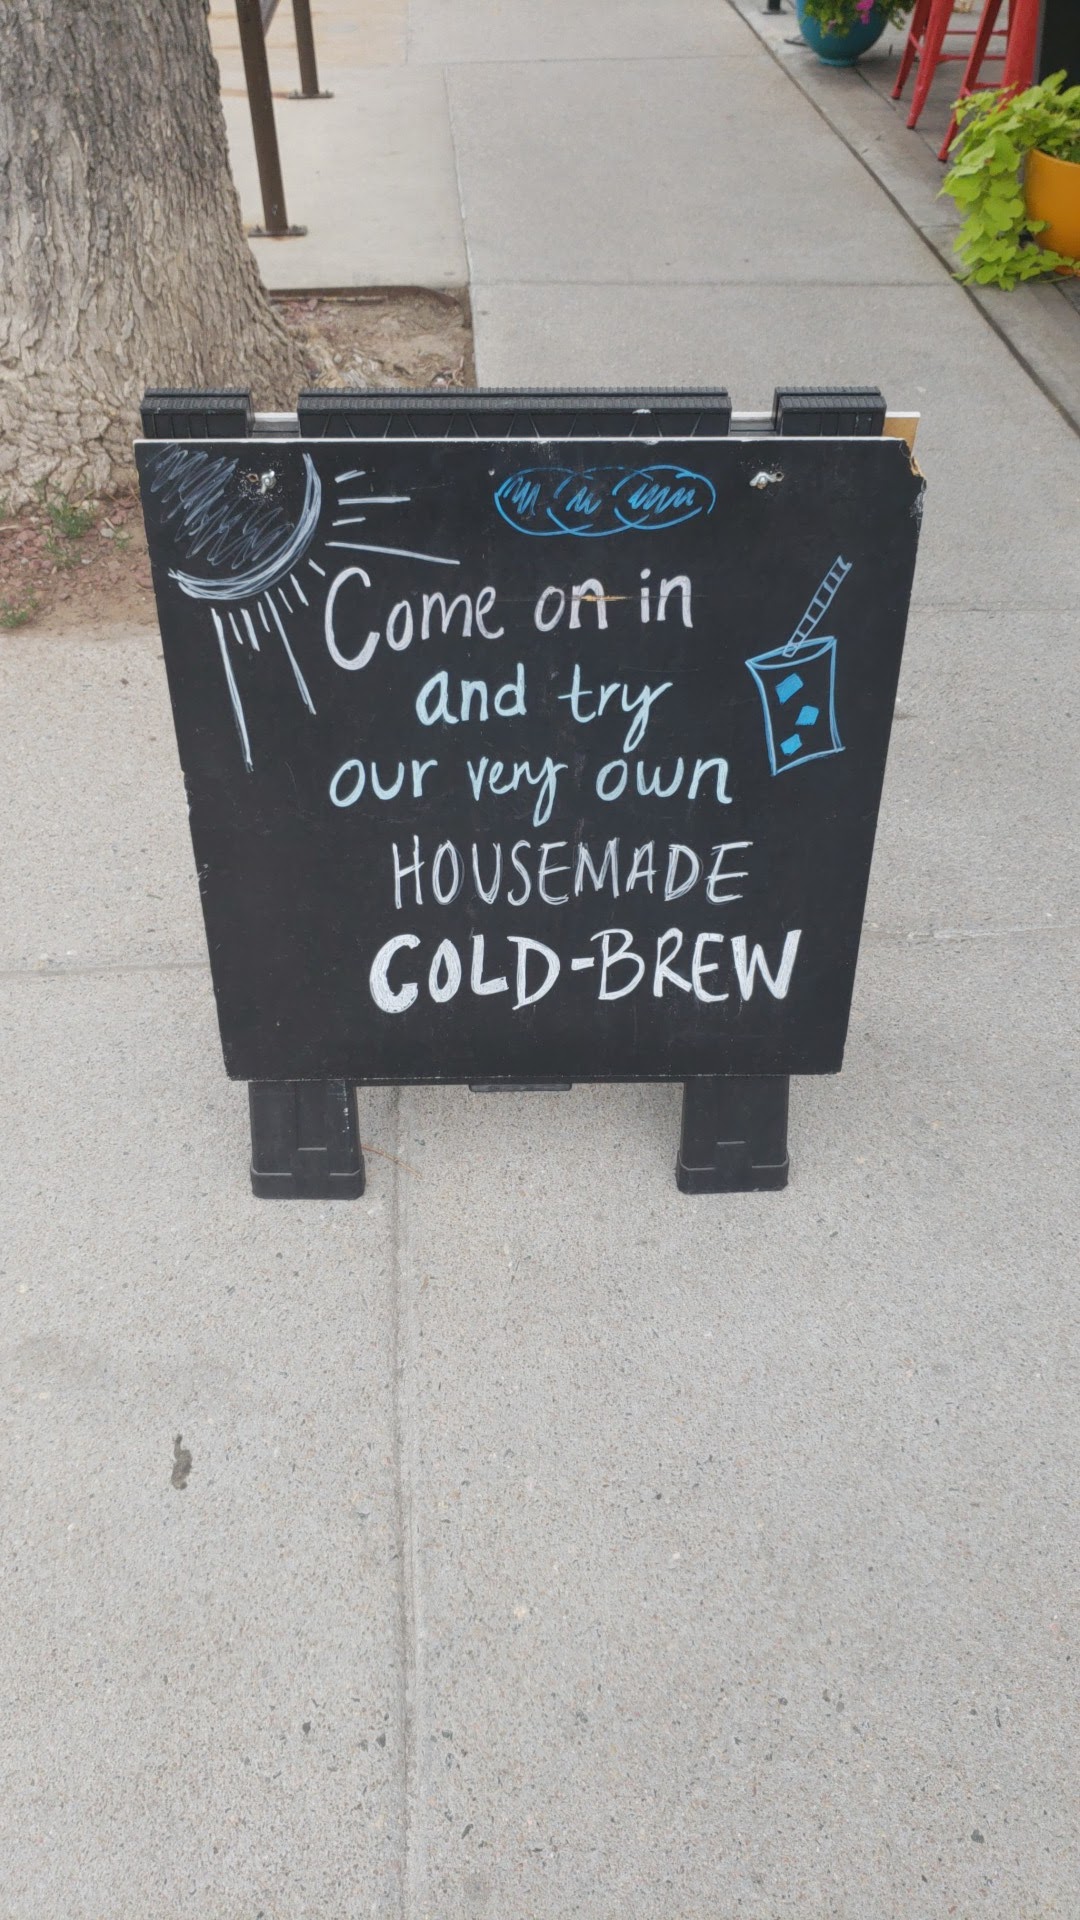 Come on in
and try
our very own
HOUSEMADE
COLD-BREW